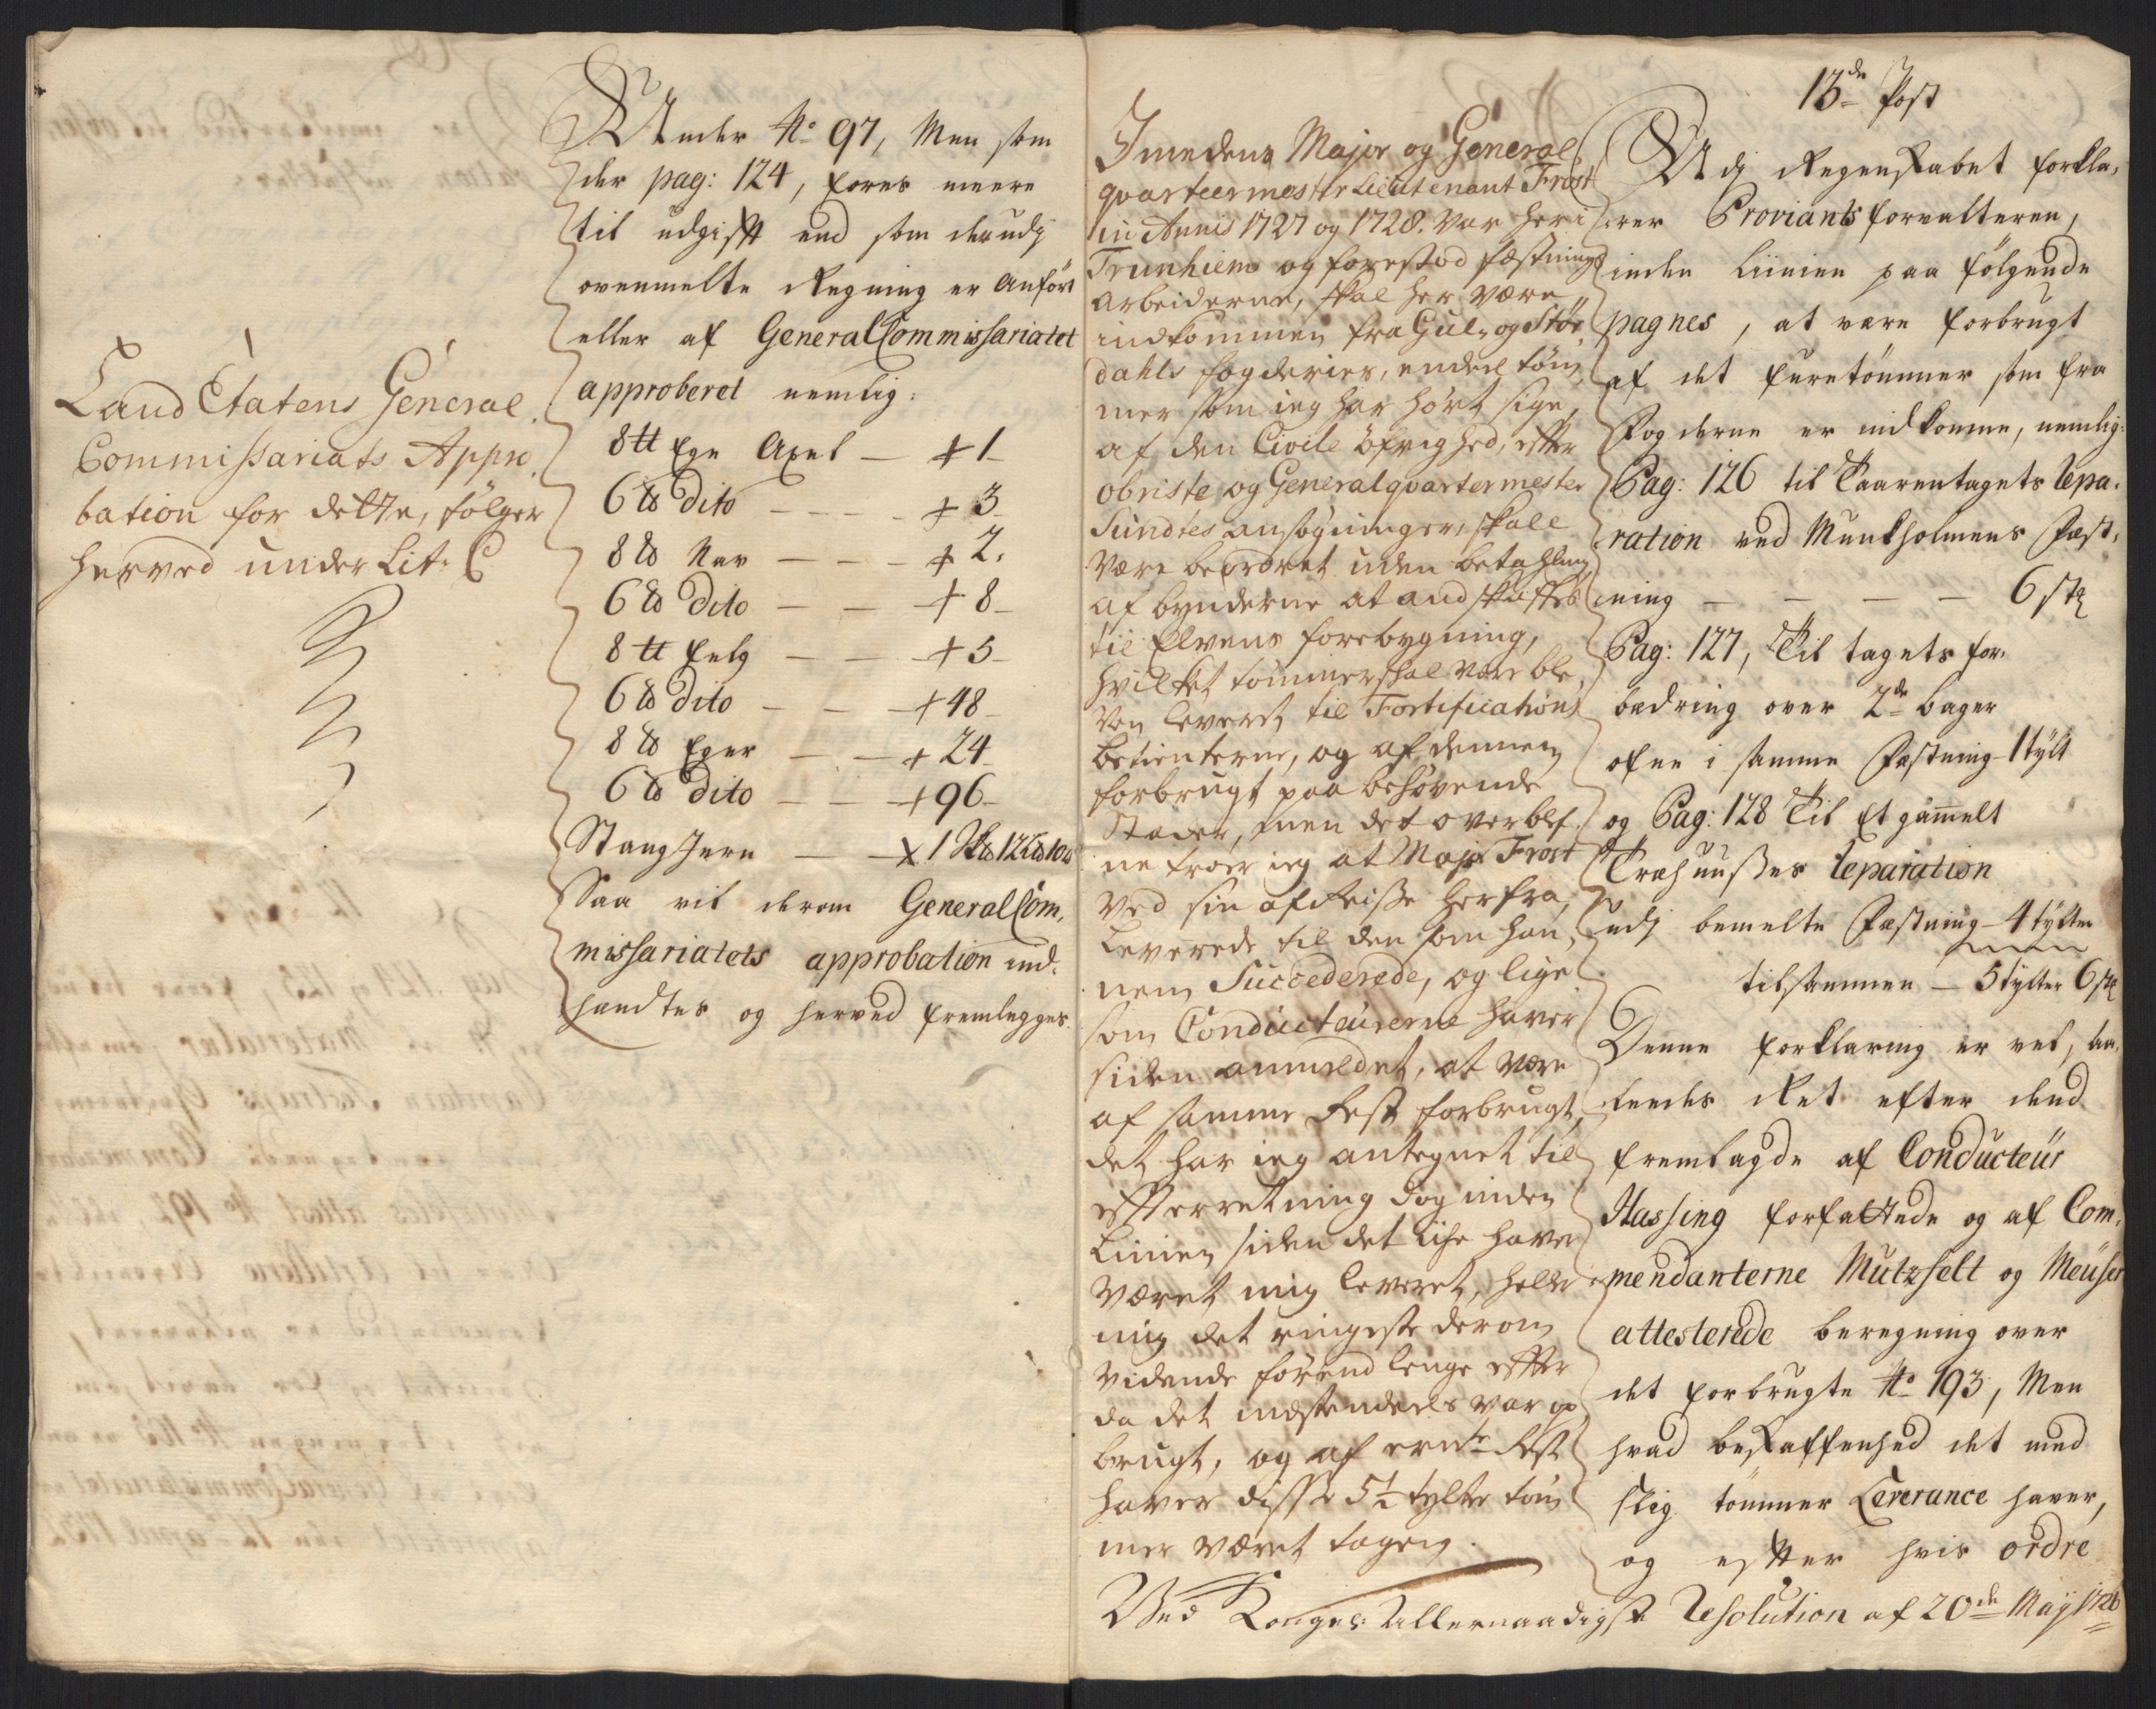 Land Etatens General
Commissariats Appro
bation for dette, følger
herved under Lit: C
Under No 97, Men som
der pag: 124, føres meere
til udgift end som derudj
ovenmelte Regning er anført
eller af General Commissariatet
approberet nemlig:
8 tt Ege Axel — + 1
6 tt dito — + 3
8 tt Nav — + 2
6 tt dito — + 8
8 tt felg — + 5
6 tt dito — + 48
8 tt Eger — + 24
6 tt dito — + 96
Stang Jern —
Saa vil derom General Com,
missariatets approbation ind,
handtes og herved fremlegges.
Imedens Major og General
qvarteermester Lieutenant Frost
in Annis 1727 og 1728. Var her i
Trunhiem og forestod fæstnings
arbeiderne, skal her være
indkommen fra Gul- og Stør,
dahls fogderier, endeel tøm,
mer som ieg har hørt sige,
af den Civile øfrighed, efter
obriste og General qvartermester
Sundtes ansøgninger, skall
være beordret uden betahling
af bønderne at andskaffes
til Elvens forebygning,
hvilket tømmer skal være ble,
ven leveret til Fortifications
betienterne, og af dennem
forbrugt paa behøvende
Stæder, men det overblef,
ne troer ieg at Major Frost
ved sin afReise herfra,
Leverede til den som han,
nem Succederede, og lige
som Conducteurerne haver
siden anmeldet, at være
af samme Rest forbrugt,
det har ieg antegnet til
efterretning dog inden
Linien siden det iche haver
været mig leveret, heller
mig det ringeste derom
vidende førend lenge efter
da det meste deels var
brugt, og af Rest
haver disse 5½ tylter tøm
mer været tagen.
13de Post
Udj Regenskabet forkla,
rer Proviantsforvalteren,
inden Liinien paa følgende
pagnes, at være forbrugt
af det furetømmer som fra
Fogderne er indkomne, nemlig:
Pag: 126 til Taarentagets Repa,
ration ved Munkholmens Fæst,
ning — — — — 6 stk
Pag: 127, Til tagets for,
bedring over 2de bager
ofne i samme Fæstning 1 tylt
og Pag: 128 Til Et gammelt
Træhuuses Reparation
udj bemelte Fæstning 4 tylter
tilsammen — 5 tylter 6 stk
Denne forklaring er vel, saa,
ledes Ret efter dend
fremlagde af Conducteur
Hassing forfattede og af Com,
mendanterne Mützfelt og Meüser
attesterede beregning over
det forbrugte No 193, Men
hvad beskaffenhed det med
slig tømmer Leverance haver,
og efter hvis ordre
Ved Konges: Allernaadigste Resolution af 20de Maij 1726